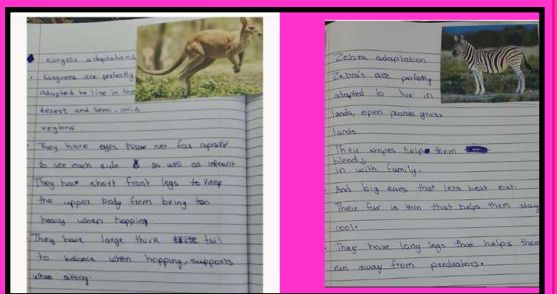 Kangroo adaptations
Kangroos are perfectly
adapted to live in the
desert and semi-arid
regions
They have eyes set far apart
to see each side as well as infront
They have short front legs to keep
the upper body from being too
heavy when hopping
They have large thick tail
to balance when hopping, supports
when sitting.
Zebra adaptation
Zebra's are perfectly
adapted to live in
lands, open planes grass
lands
Their stripes help them
blends
in with family.
And big ears that lets heat out.
Their fur is thin that helps them stay
cool.
They have long legs that helps them
run away from predators.